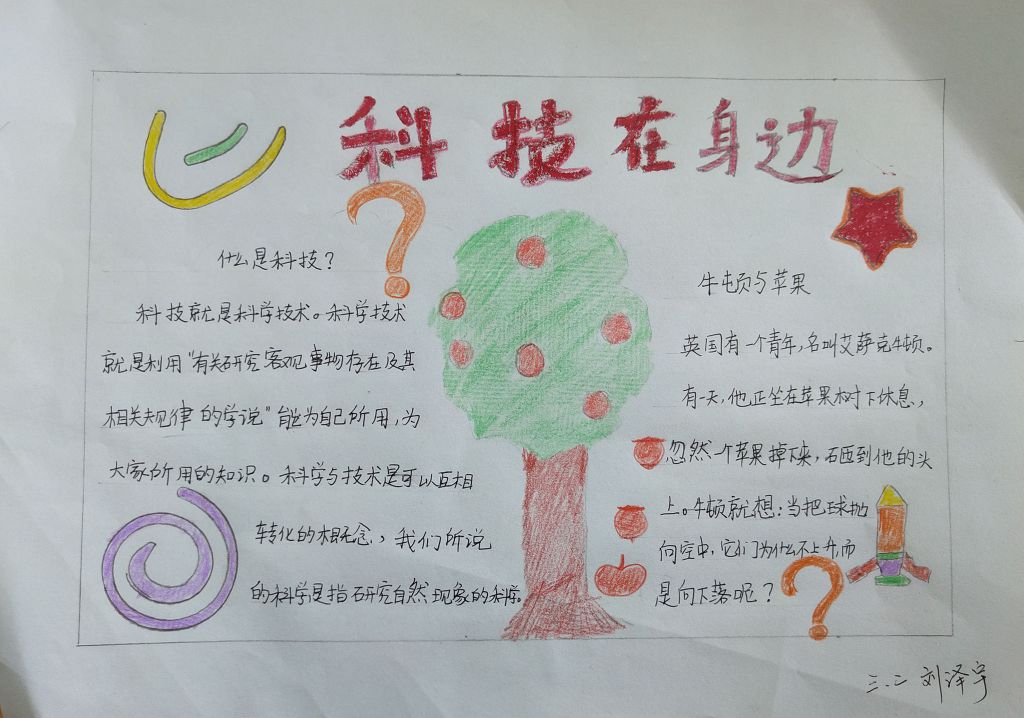 科技在身边
什么是科技？
科技就是科学技术。科学技术
就是利用“有关研究客观事物存在及其
相关规律的学说”能为自己所用，为
大家所用的知识。科学与技术是可以互相
转化的概念，我们所说
的科学是指研究自然现象的科学。
牛顿与苹果
英国有一个青年，名叫艾萨克牛顿。
有一天，他正坐在苹果树下休息，
忽然一个苹果掉下来，砸到他的头
上。牛顿就想：当把球抛
向空中，它们为什么不上升，而
是向下落呢？
三.二 刘泽宇